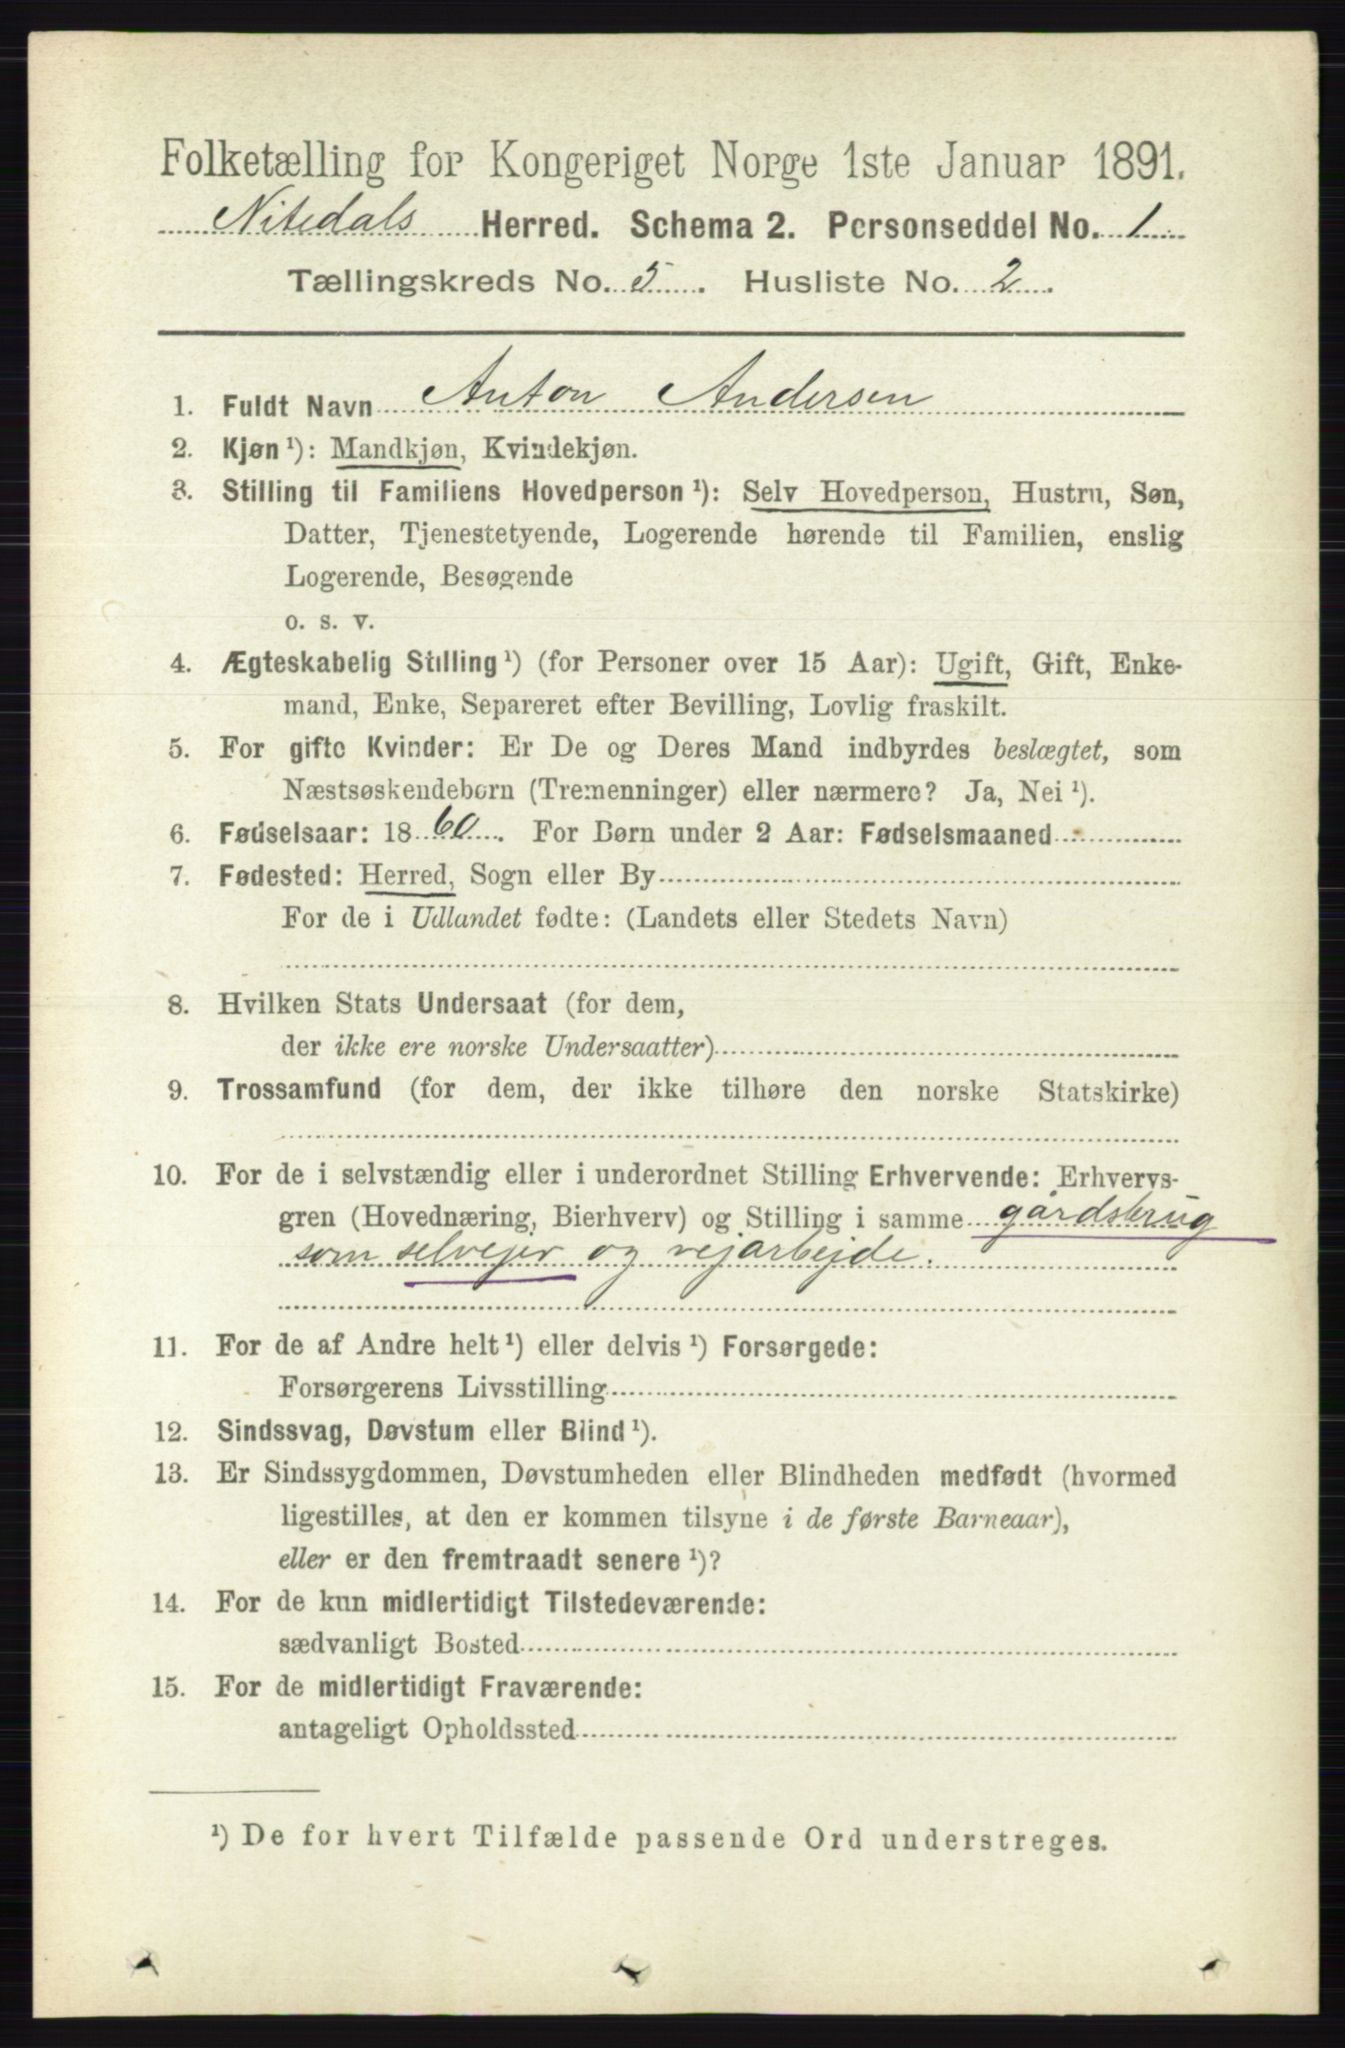 Folketælling for Kongeriget Norge 1ste Januar 1891.
Nitedals Herred. Schema 2. Personseddel No. 1
Tællingskreds No. 5. Husliste No. 2.
1. Fuldt Navn Anton Andersen
2. Kjøn ¹): Mandkjøn, Kvindekjøn.
3. Stilling til Familiens Hovedperson ¹): Selv Hovedperson, Hustru, Søn,
Datter, Tjenestetyende, Logerende hørende til Familien, enslig
Logerende, Besøgende
o. s. v.
4. Ægteskabelig Stilling ¹) (for Personer over 15 Aar): Ugift, Gift, Enke-
mand, Enke, Separeret efter Bevilling, Lovlig fraskilt.
5. For gifte Kvinder: Er De og Deres Mand indbyrdes beslægtet, som
Næstsøskendebørn (Tremenninger) eller nærmere? Ja, Nei ¹).
6. Fødselsaar: 1860. For Børn under 2 Aar: Fødselsmaaned
7. Fødested: Herred, Sogn eller By
For de i Udlandet fødte: (Landets eller Stedets Navn)
8. Hvilken Stats Undersaat (for dem,
der ikke ere norske Undersaatter)
9. Trossamfund (for dem, der ikke tilhøre den norske Statskirke)
10. For de i selvstændig eller i underordnet Stilling Erhvervende: Erhvervs-
gren (Hovednæring, Bierhverv) og Stilling i samme gårdsbrug
som selvejer og vejarbejde.
11. For de af Andre helt ¹) eller delvis ¹) Forsørgede:
Forsørgerens Livsstilling
12. Sindssvag, Døvstum eller Blind ¹).
13. Er Sindssygdommen, Døvstumheden eller Blindheden medfødt (hvormed
ligestilles, at den er kommen tilsyne i de første Barneaar),
eller er den fremtraadt senere ¹)?
14. For de kun midlertidigt Tilstedeværende:
sædvanligt Bosted
15. For de midlertidigt Fraværende:
antageligt Opholdssted
¹) De for hvert Tilfælde passende Ord understreges.